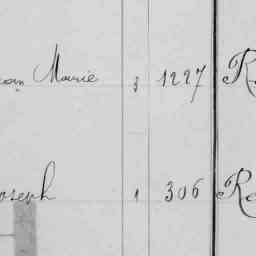 Marie 3 1227 R
oseph 1 306 Re